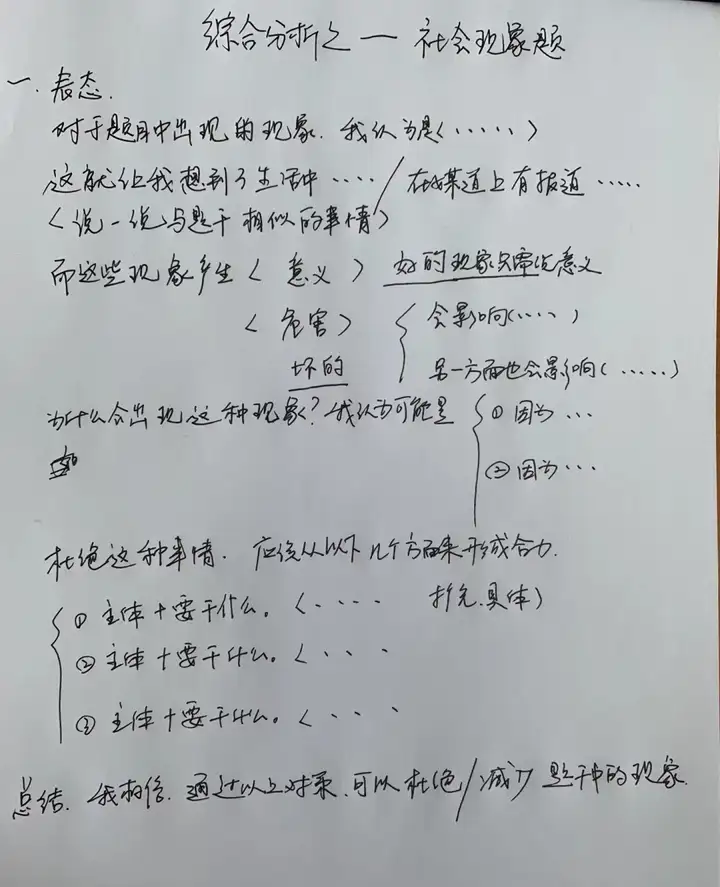 综合分析之一 社会现象题
一. 表态.
对于题目中出现的现象. 我认为是(.....)
这就让我想到了生活中..../在某道上有报道.....
(说一说与题干相似的事情)
而这些现象产生(意义) 好的现象只需说意义
(危害) { 会影响(....)
坏的 另一方面也会影响(.....)
为什么会出现这种现象?我认为可能是 { ①因为...
②因为...
杜绝这种事情. 应该从以下几个方面来形成合力.
{ ①主体+要干什么。(.... 扩充.具体)
②主体+要干什么。(...
③主体+要干什么。(....
总结. 我相信. 通过以上对策.可以杜绝/减少 题干中的现象.